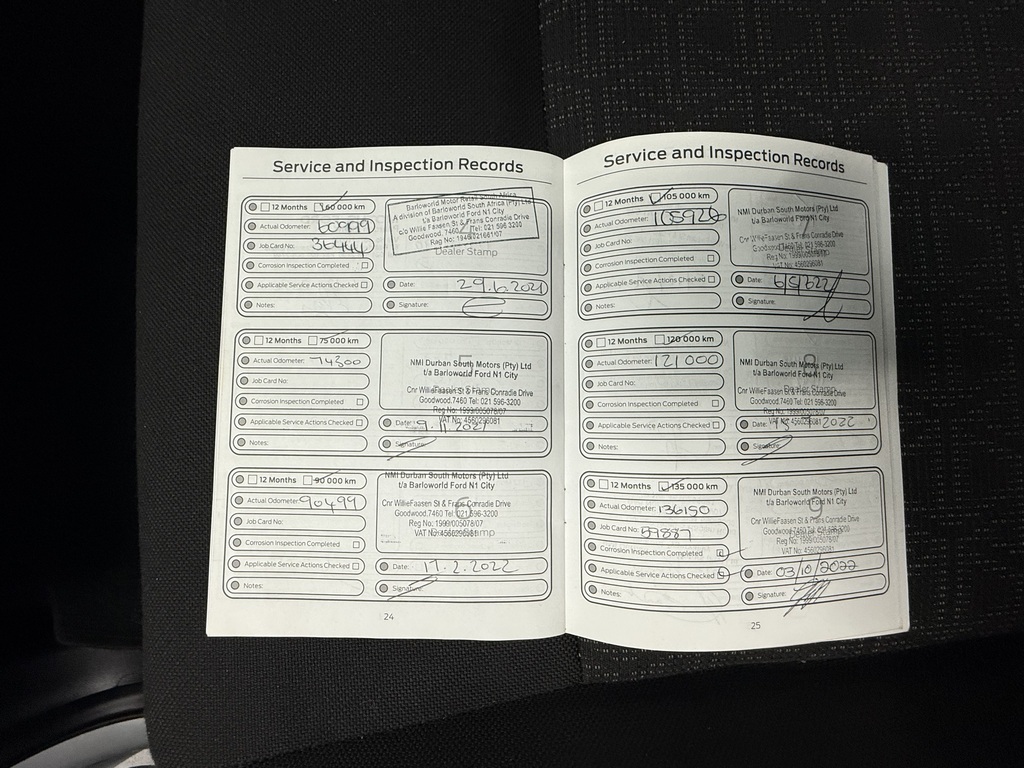 Service and Inspection Records
12 Months 60 000 km
Actual Odometer: 60999
Job Card No: 36444
Corrosion Inspection Completed
Applicable Service Actions Checked
Notes:
Barloworld Motor Retail South Africa
A division of Barloworld South Africa (Pty) Ltd
t/a Barloworld Ford N1 City
c/o Willie Faasen St & Frans Conradie Drive
Goodwood, 7460 Tel: 021 596 3200
Reg No:
Dealer Stamp
Date: 29.6.2021
Signature:
12 Months 75 000 km
Actual Odometer: 74300
Job Card No:
Corrosion Inspection Completed
Applicable Service Actions Checked
Notes:
5
NMI Durban South Motors (Pty) Ltd
t/a Barloworld Ford N1 City
Cnr WillieFaasen St & Frans Conradie Drive
Goodwood,7460 Tel: 021 596-3200
Reg No: 1999/005078/07
VAT No: 4560296081
Date: 9.11.2021
Signature:
12 Months 90 000 km
Actual Odometer: 90499
Job Card No:
Corrosion Inspection Completed
Applicable Service Actions Checked
Notes:
6
NMI Durban South Motors (Pty) Ltd
t/a Barloworld Ford N1 City
Cnr WillieFaasen St & Frans Conradie Drive
Goodwood,7460 Tel: 021 596-3200
Reg No: 1999/005078/07
VAT No: 4560296081
Date: 17.2.2022
Signature:
24
Service and Inspection Records
12 Months 105 000 km
Actual Odometer: 105926
Job Card No:
Corrosion Inspection Completed
Applicable Service Actions Checked
Notes:
7
NMI Durban South Motors (Pty) Ltd
t/a Barloworld Ford N1 City
Cnr WillieFaasen St & Frans Conradie Drive
Goodwood,7460 Tel: 021 596-3200
Reg No: 1999/005078/07
VAT No: 4560296081
Date: 6/5/2022
Signature:
12 Months 120 000 km
Actual Odometer: 121000
Job Card No:
Corrosion Inspection Completed
Applicable Service Actions Checked
Notes:
8
NMI Durban South Motors (Pty) Ltd
t/a Barloworld Ford N1 City
Cnr WillieFaasen St & Frans Conradie Drive
Dealer Stamp
Goodwood,7460 Tel: 021 596-3200
Reg No: 1999/005078/07
VAT No: 4560296081
Date: 2022
Signature:
12 Months 135 000 km
Actual Odometer: 136150
Job Card No: 59887
Corrosion Inspection Completed
Applicable Service Actions Checked
Notes:
9
NMI Durban South Motors (Pty) Ltd
t/a Barloworld Ford N1 City
Cnr WillieFaasen St & Frans Conradie Drive
Goodwood,7460 Tel: 021 596-3200
Reg No: 1999/005078/07
VAT No: 4560296081
Date: 03/10/2022
Signature:
25